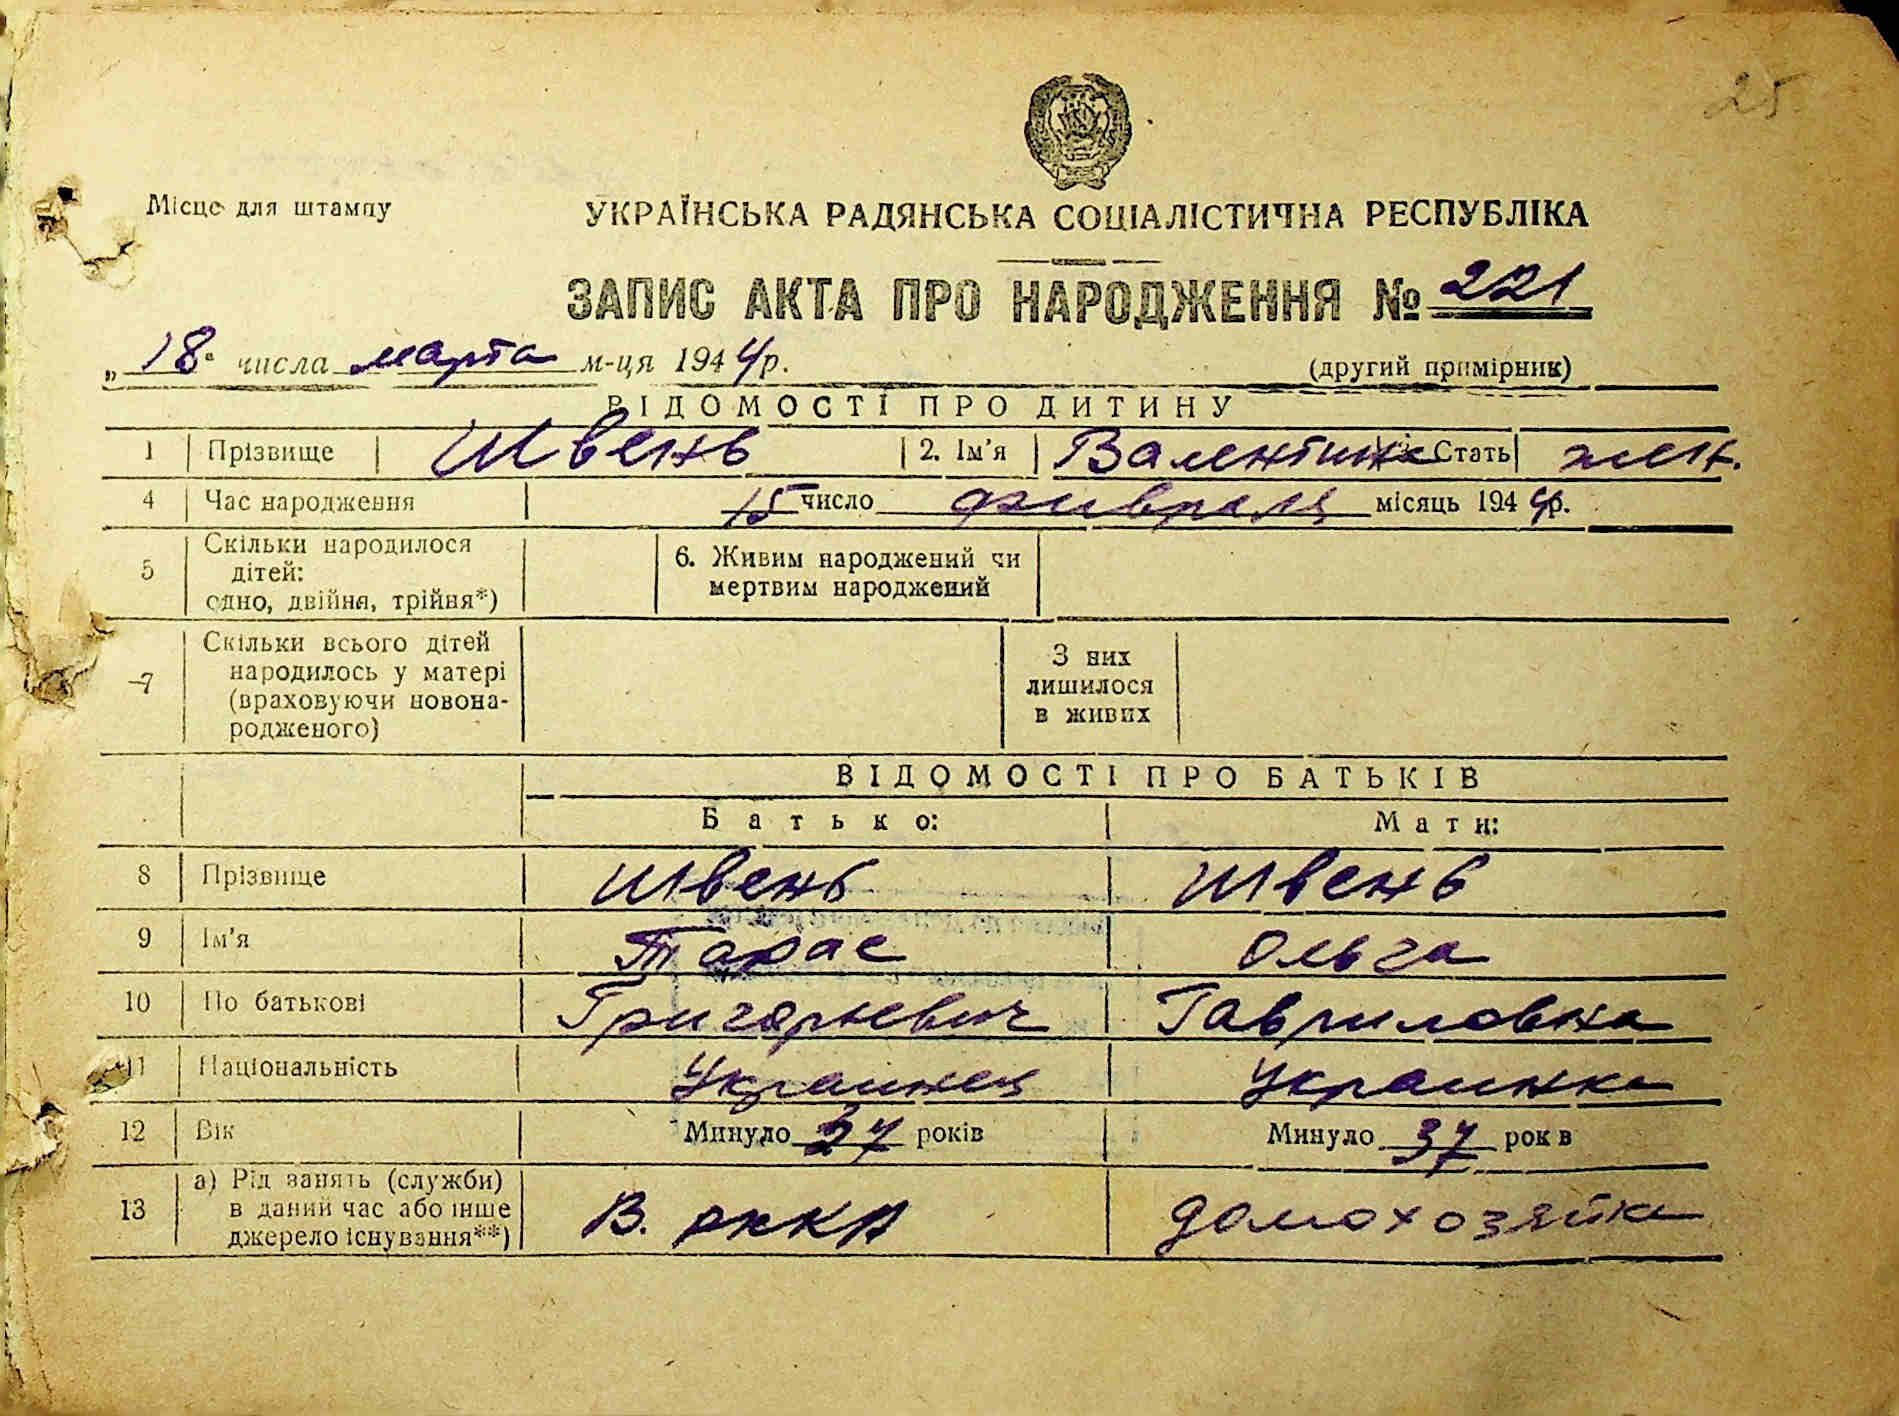 25.
Місце для штампу
УКРАЇНСЬКА РАДЯНСЬКА СОЦІАЛІСТИЧНА РЕСПУБЛІКА
ЗАПИС АКТА ПРО НАРОДЖЕННЯ № 221
„ 18 числа марта м-ця 1944 р.
(другий примірник)
ВІДОМОСТІ ПРО ДИТИНУ
1 Прізвище Швень 2. Ім'я Валентина Стать жен.
4 Час народження 15 число февраля місяць 1944 р.
5 Скільки народилося
дітей:
одно, двійня, трійня*)
6. Живим народжений чи
мертвим народжений
7 Скільки всього дітей
народилось у матері
(враховуючи новона-
родженого)
З них
лишилося
в живих
ВІДОМОСТІ ПРО БАТЬКІВ
Батько: Мати:
8 Прізвище Швень Швень
9 Ім'я Тарас Ольга
10 По батькові Григорьевич Гавриловна
11 Національність Украинец Украинка
12 Вік Минуло 37 років Минуло 37 рок в
13 а) Рід занять (служби)
в даний час або інше
джерело існування**)
В. РККА домохозяйка